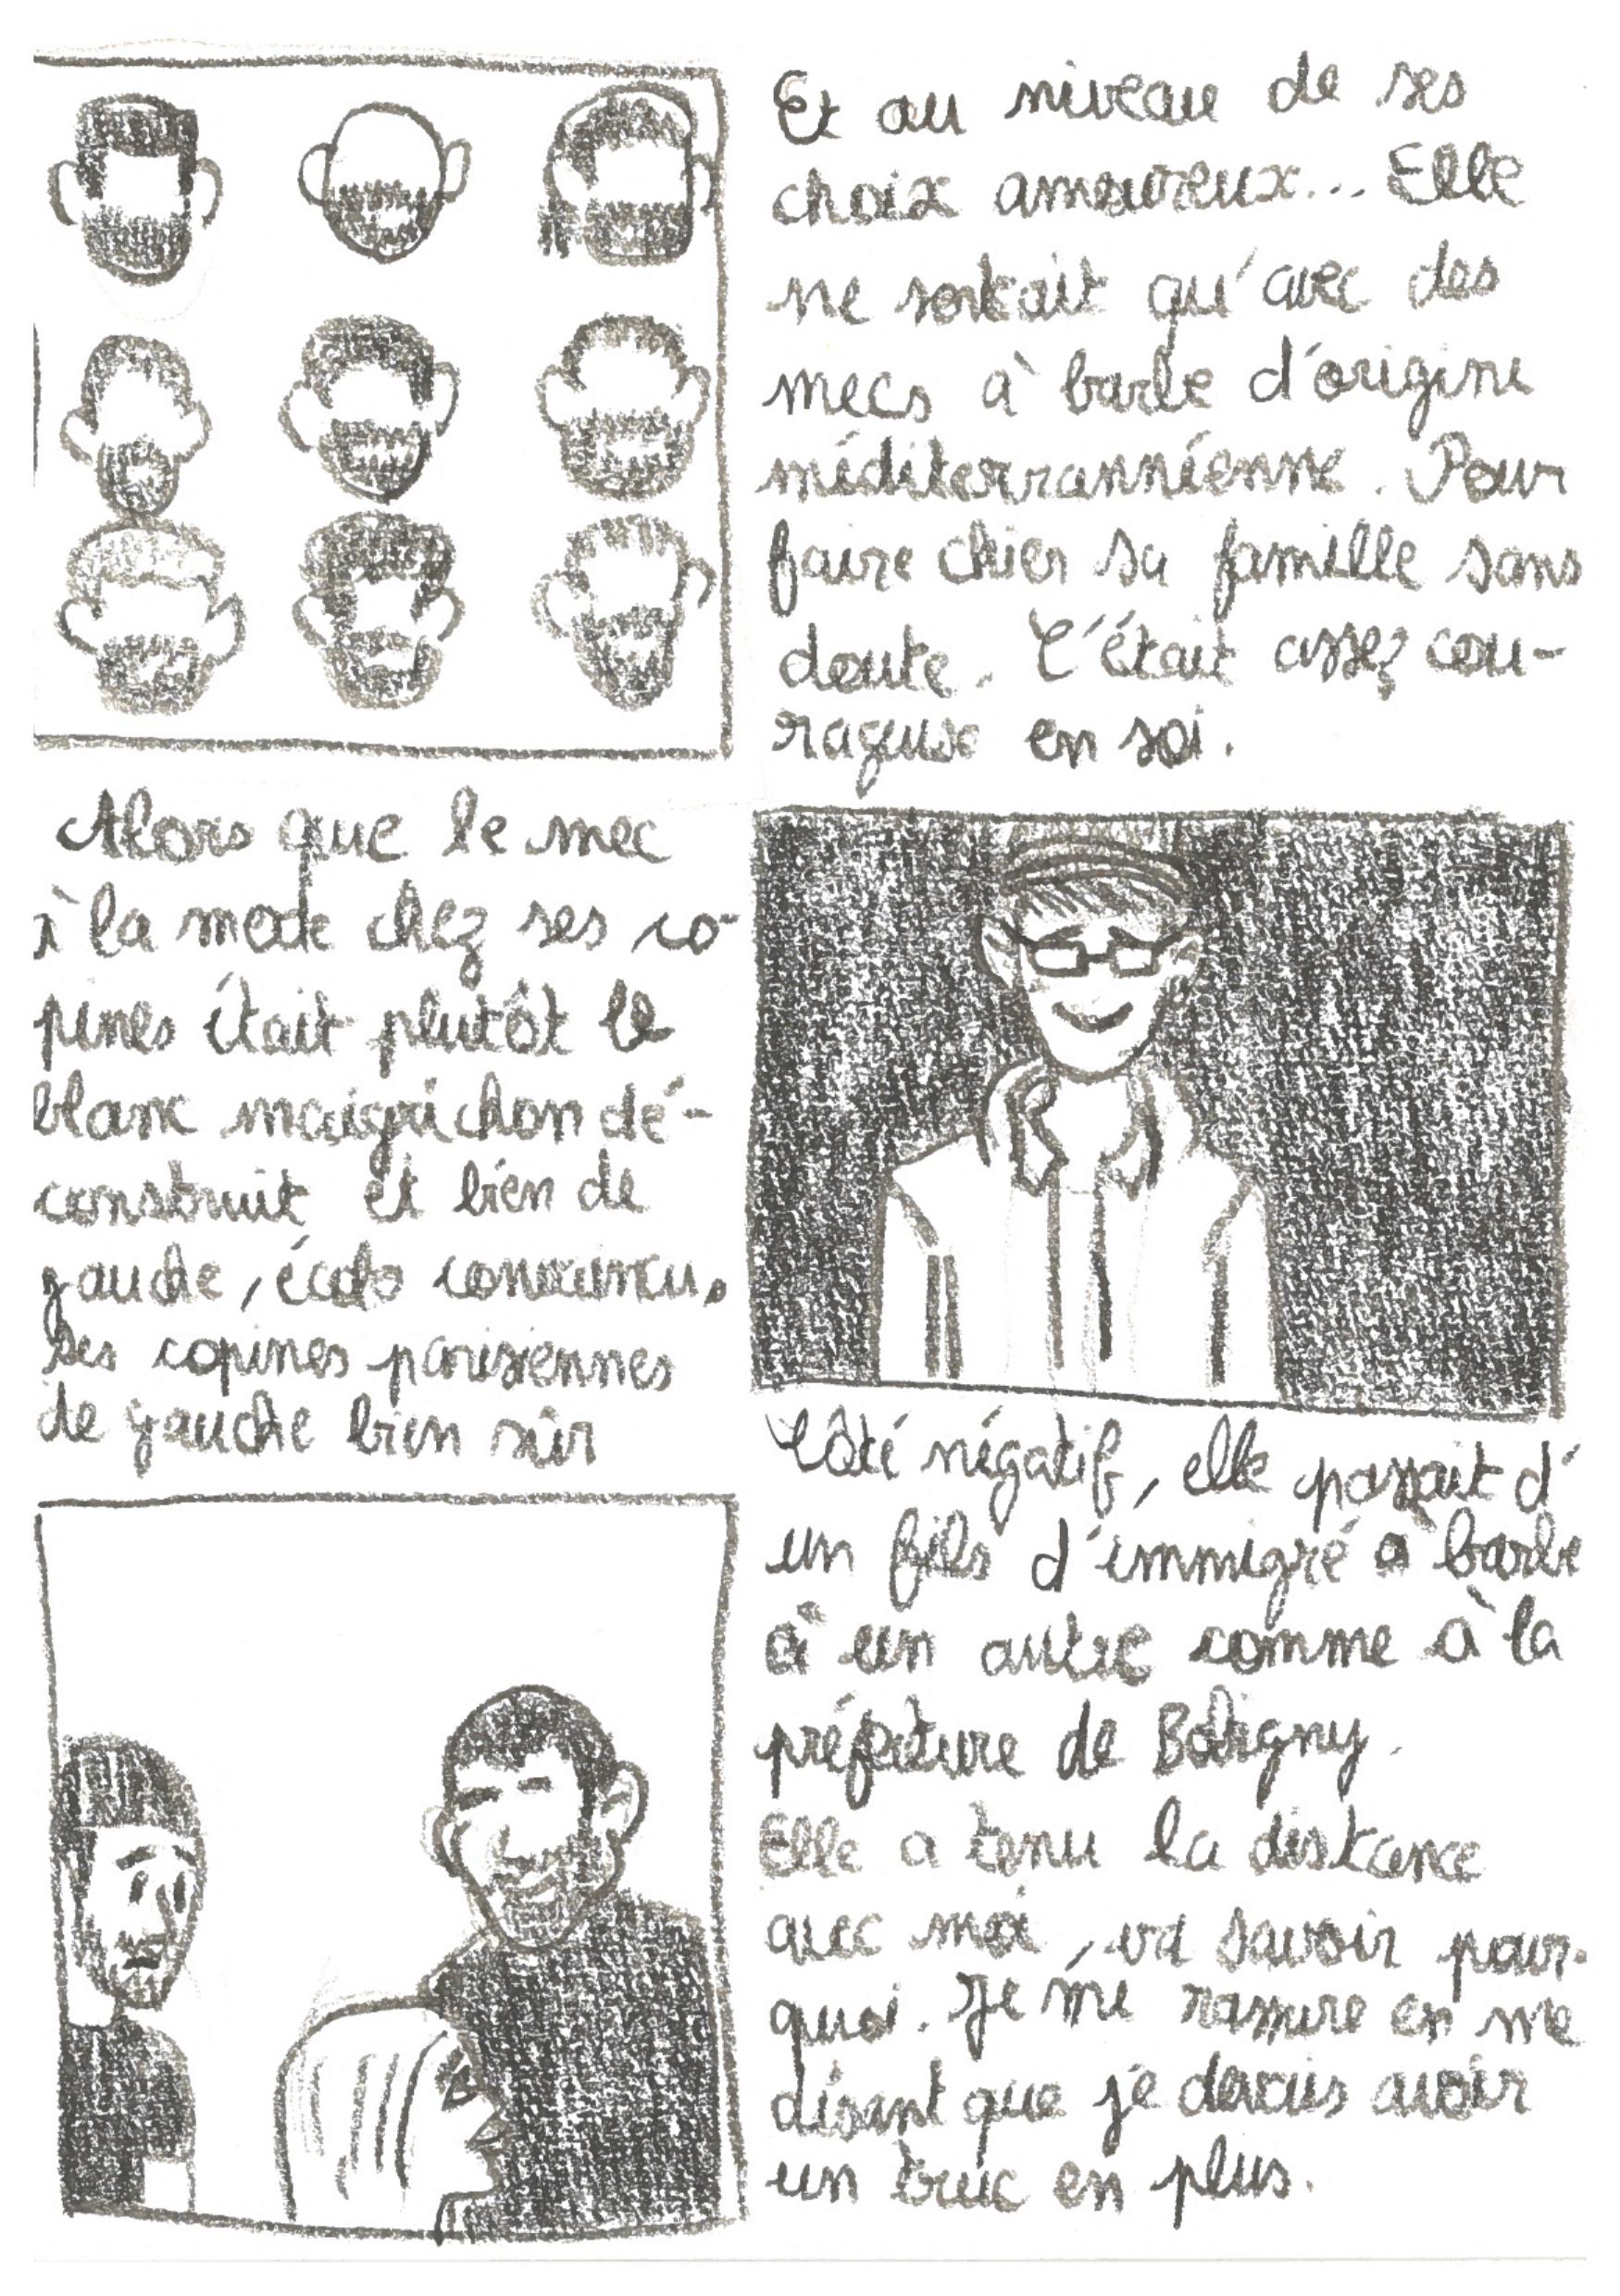 Et au niveau de ses
choix amoureux... Elle
ne sortait qu'avec des
mecs à barbe d'origine
méditerrannéenne. Pour
faire chier sa famille sans
doute. C'était assez cou-
rageuse en soi.
Alors que le mec
à la mode chez ses co-
pines était plutôt le
blanc maigrichon dé-
construit et bien de
gauche, écolo convaincu.
Ses copines parisiennes
de gauche bien sûr
Côté négatif, elle passait d'
un fils d'immigré à barbe
à un autre comme à la
préfecture de Bobigny.
Elle a tenu la distance
avec moi, va savoir pour-
quoi. Je me rassure en me
disant que je devais avoir
un truc en plus.